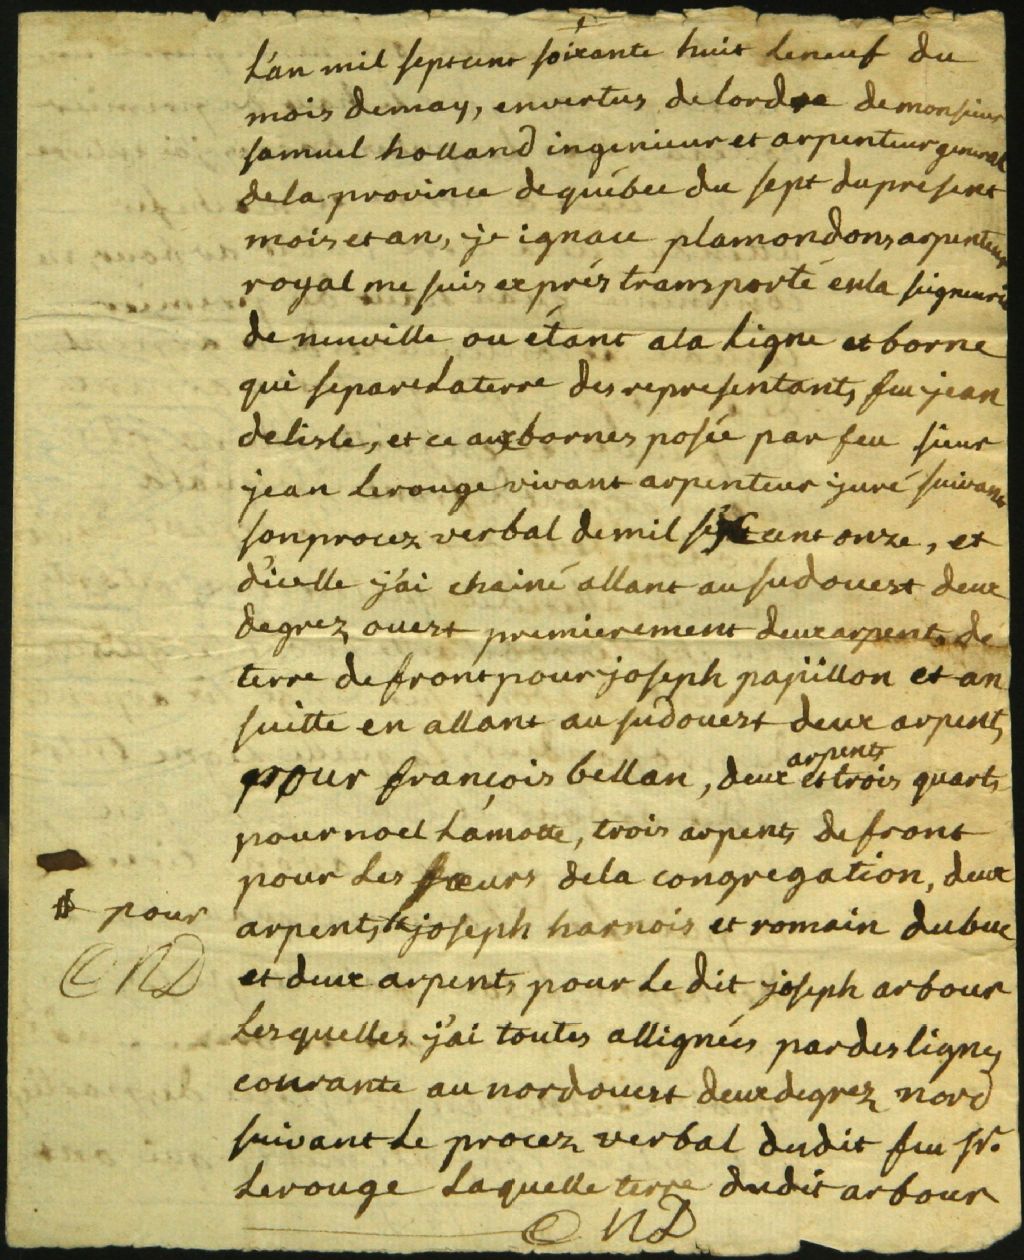 L'an mil sept cent soixante huit le neuf du
mois de may, en vertus de lordre de monsieur
samuel holland ingenieur et arpenteur general
de la province de québec du sept du present
mois et an, je ignace plamondons arpenteur
royal me suis exprés transporté en la seigneurie
de neuville ou étant a la ligne et borne
qui separe la terre des representants feu jean
delisle, et ce aux bornes posée par feu sieur
jean Lerouge vivant arpenteur juré suivant
son procez verbal de mil sept cent onze, et
d'icelle j'ai chainé allant au sudouest deux
degrez ouest premierement deux arpents de
terre de front pour joseph papillon et an
suitte en allant au sudouest deux arpents
pour françois bellan, deux et trois quarts
arpents
pour noel Lamotte, trois arpents de front
pour Les sœurs de la congregation, deux
# pour
arpents # joseph harnois et romain dubuc
CND
et deux arpents pour Le dit joseph arbour
Lesquelles j'ai toutes allignées par des lignes
courante au nordouest deux degrez nord
suivant Le procez verbal dudit feu sr.
Lerouge Laquelle terre dudit arbour
CND